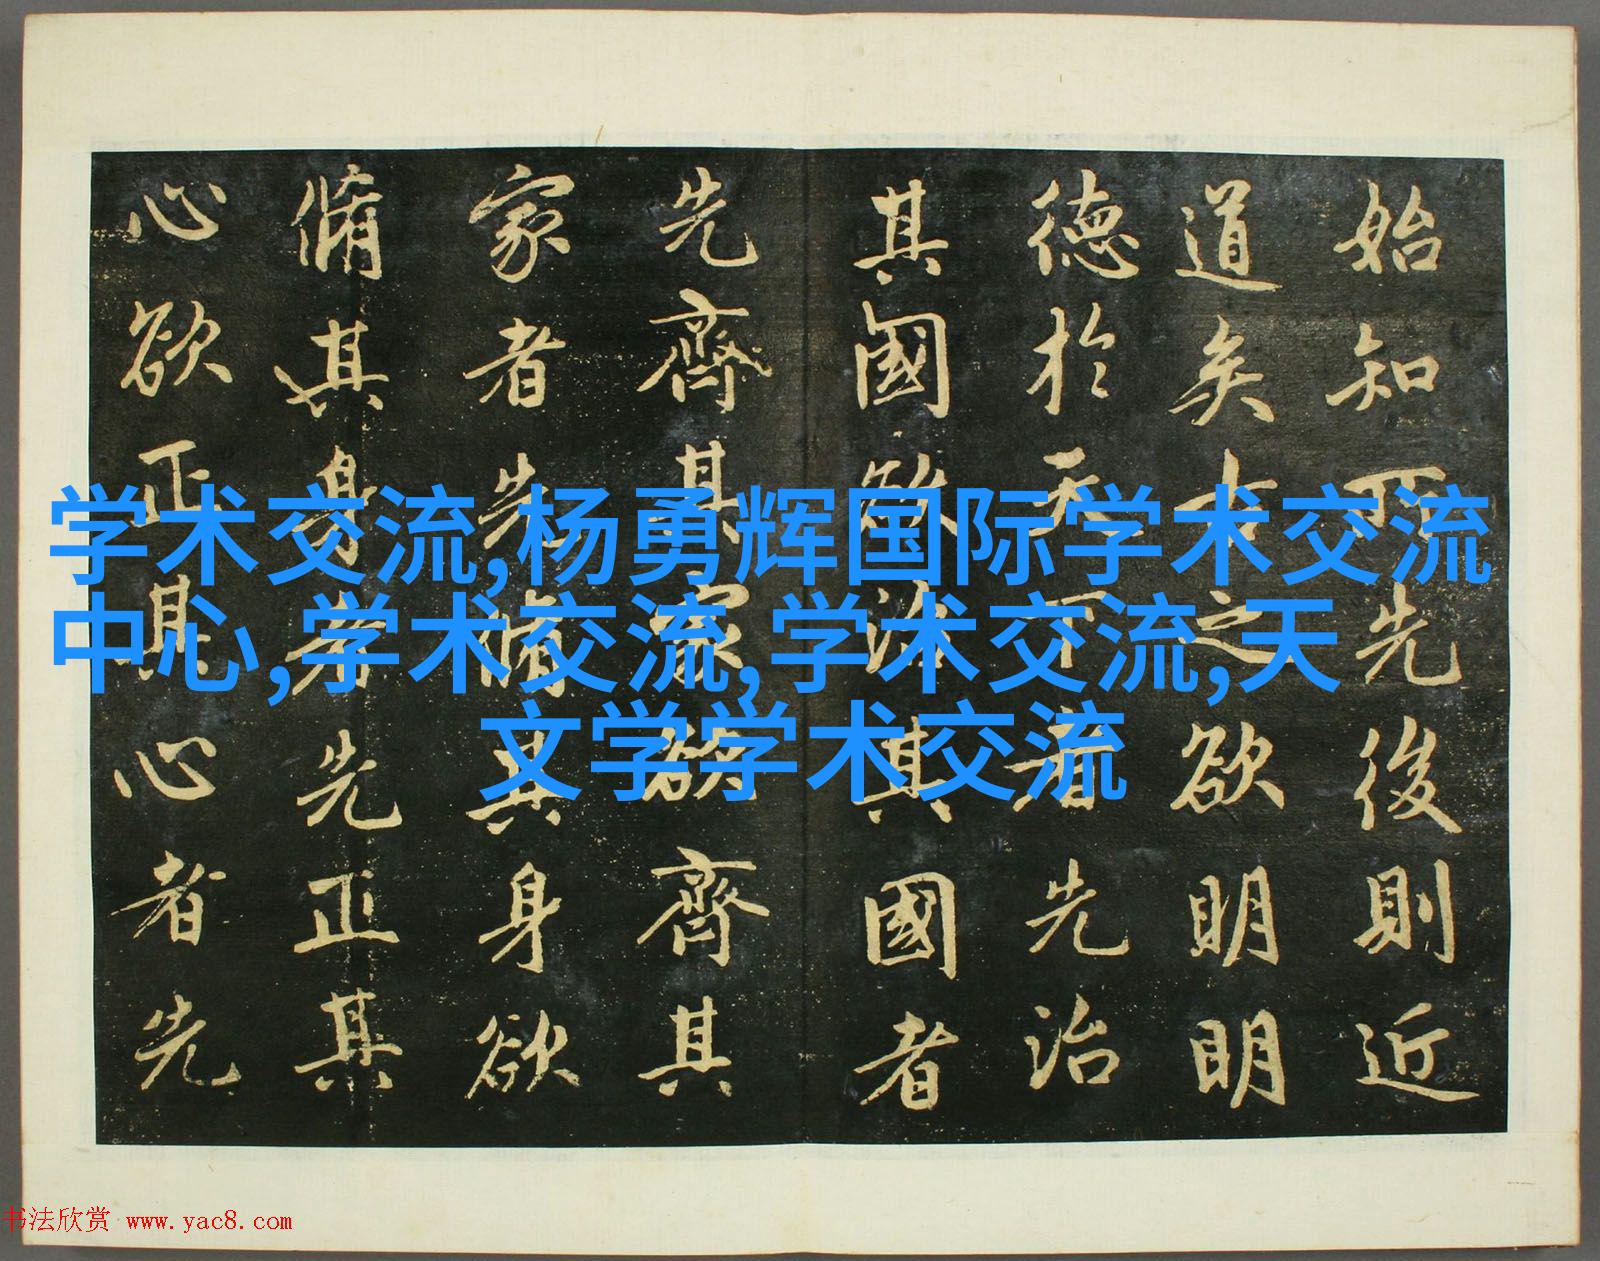 始知所先後則近
道矣古之欲明明
德於天下者先治
其國欲治其國者
先齊其家欲齊其
家者先脩其身欲
脩其身者先正其
心欲正其心者先
学术交流,杨勇辉国际学术交流
中心,学术交流,学术交流,天
文学学术交流
书法欣赏 www.yac8.com